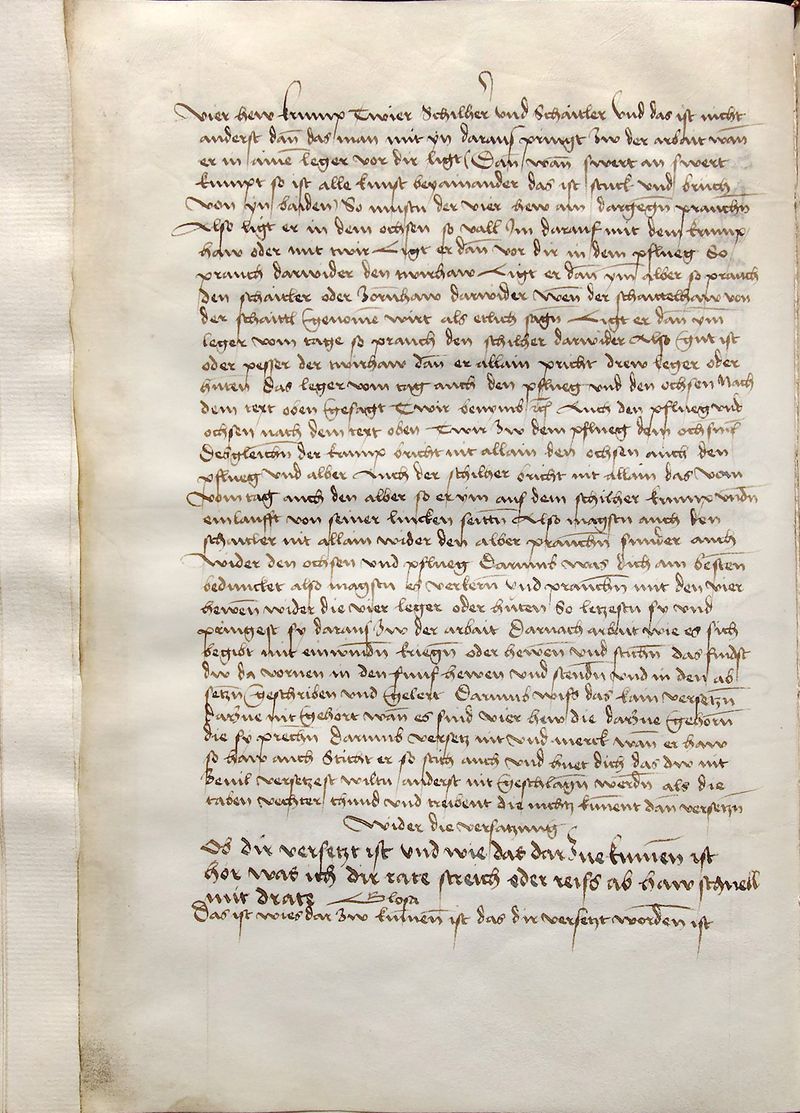 vier hew krump Twier Schilher vnd Schaitler vnd das ist nicht
anderst dan̄ das man mit yn daraus pringt zw der arbait wan̄
er in aine̅ leger vor dir ligt (Dan̄ wan̄ swert an swert
kumpt so ist alle kunst beyainander das ist stuck vnd bruch
von yn baiden) So mustu der vier hew ain dargegn̄ prauchn̄
Also ligt er in dem ochsen so vall Im darauf mit dem krump
haw oder mit twir Ligt er dan̄ vor dir in dem pflueg So
prauch darwider den twirhaw Ligt er dan̄ ym alber so prauch
den schaitler oder zorn̄haw darwider wen̄ der schaittelhaw von
der schaittl genome̅ wirt als etlich sagn̄ Ligt er dan̄ ym
leger vom tage so prauch den schilher darwider Also gut ist
oder pesser der twirhaw dan̄ er allain pricht drew leger oder
huten das leger vom tag auch den pflueg vnd den ochsen Nach
dem text oben gesagt Twir benymb etc̄ Auch den pflueg vnd
ochsen nach dem text oben Twir zw dem pflueg dem ochsen etc̄
Desgleichn̄ der krump bricht nit allain den ochsen auch den
pflueg vnd alber Auch der schilher bricht nit allain das vom
vom tag auch den alber so er ym auf dem schilher krump vndn̄
einlaufft von seiner lincken seittn̄ Also magstu auch den
schaitler nit allain wider den alber prauchn̄ sunder auch
wider den ochsen vnd pflueg Darumb was dich am besten
beduncket also magstu es verkern̄ vnd prauchn̄ mit den vier
hewen̄ wider die vier leger oder huten So letzestu sy vnd
pringest sy daraus zw der arbait Darnach arbait wie es sich
begibt mit einwindn̄ kriegn̄ oder hewen̄ vnd stichn̄ das findst
dw da vornen in den funf hewen vnd stendn̄ vnd in den ab
setzn̄ geschriben vnd gelert Darumb wiss das kain versetzn̄
darzue nit gehort wan̄ es sind vier hew die darzue gehorn̄
die sy prechn̄ Darumb versetz nit vnd merck wan̄ er haw
so haw auch Sticht er so stich auch vnd huet dich das dw nit
zeuil versetzest wiltu anderst nit geschlagn̄ werdn̄ als die
taben vechter thund vnd treibent die nichtz kunent dan̄ versetzn̄
Wider die versatzung
Ob dir versetzt ist vnd wie das dar zue kumen̄ ist
hor was ich dir rate streich oder reiss ab haw schnell
mit drate Glosa
Das ist wies dar zw kumen̄ ist das dir versetzt worden̄ ist